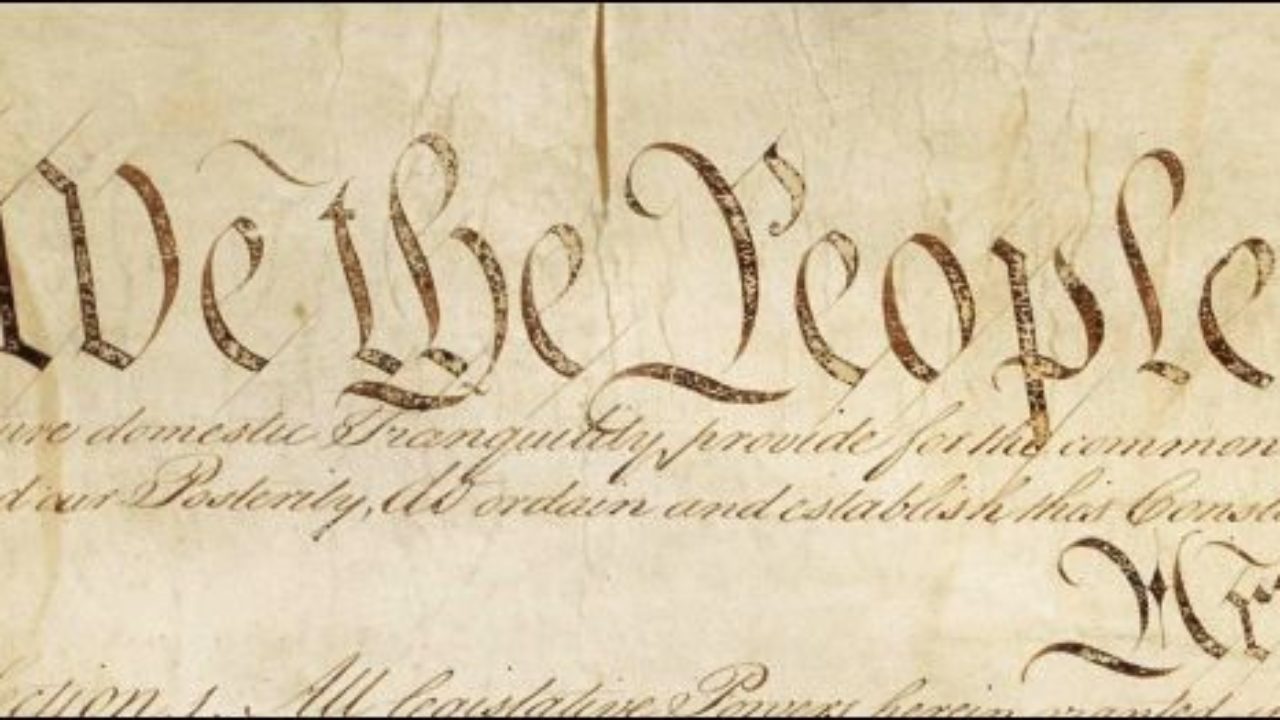 We the People
ure domestic Tranquility, provide for the common
d our Posterity, do ordain and establish this Const
Section. 1. All legislative Powers herein granted